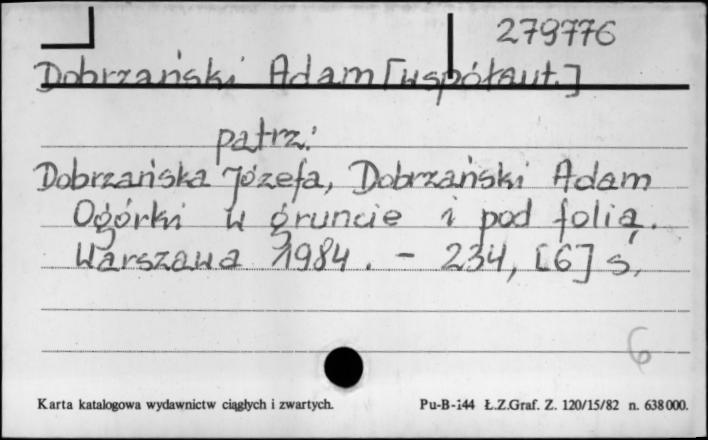 279776
Dobrzański Adam [współaut.]
patrz:
Dobrzańska Józefa, Dobrzański Adam
Ogórki w gruncie i pod folią.
Warszawa 1984. - 234, [6] s.
6
Karta katalogowa wydawnictw ciągłych i zwartych.
Pu-B-144 Ł.Z.Graf. Z. 120/15/82 n. 638000.